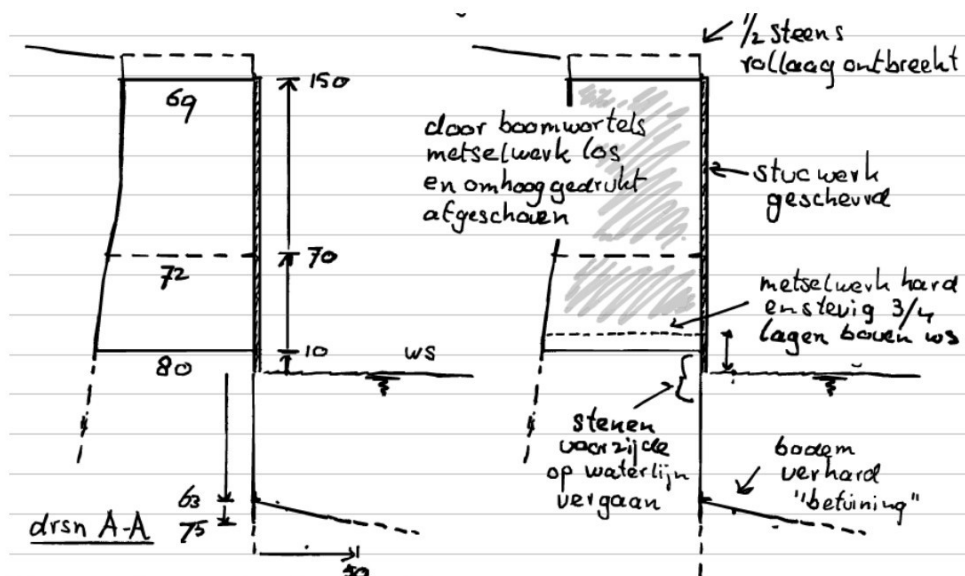 69
72
80
150
70
10
ws
63
75
50
drsn A-A
1/2 steens
rollaag ontbreekt
door boomwortels
metselwerk los
en omhoog gedrukt
afgeschoven
stucwerk
gescheurd
metselwerk hard
en stevig 3/4
lagen boven ws
stenen
voorzijde
op waterlijn
vergaan
bodem
verhard
"betuining"